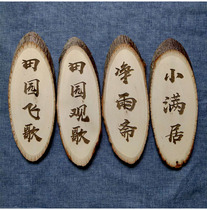 田园飞歌
田园观歌
净雨斋
小满居